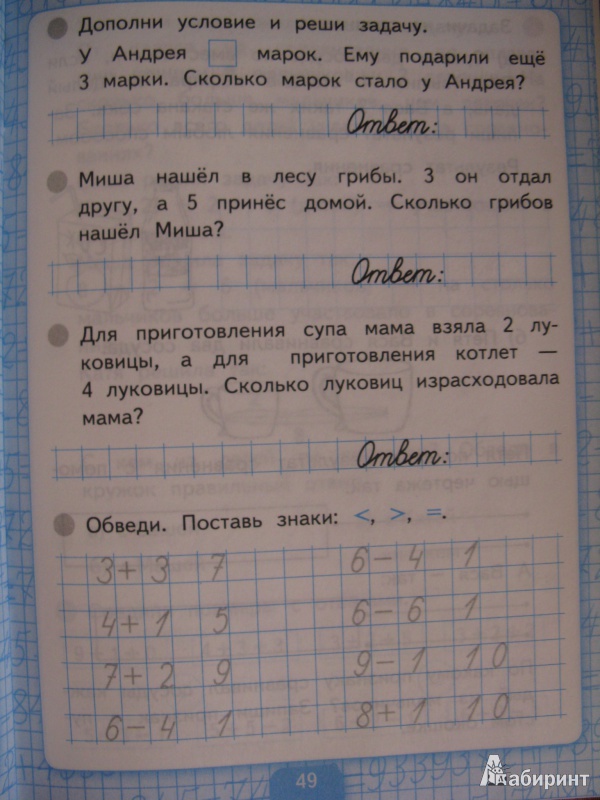 Дополни условие и реши задачу.
У Андрея марок. Ему подарили ещё
3 марки. Сколько марок стало у Андрея?
Ответ:
Миша нашёл в лесу грибы. 3 он отдал
другу, а 5 принёс домой. Сколько грибов
нашёл Миша?
Ответ:
Для приготовления супа мама взяла 2 лу-
ковицы, а для приготовления котлет —
4 луковицы. Сколько луковиц израсходовала
мама?
Ответ:
Обведи. Поставь знаки: <, >, =.
3+3 7 6−4 1
4+1 5 6−6 1
7+2 9 9−1 10
6−4 1 8+1 10
49
Лабиринт